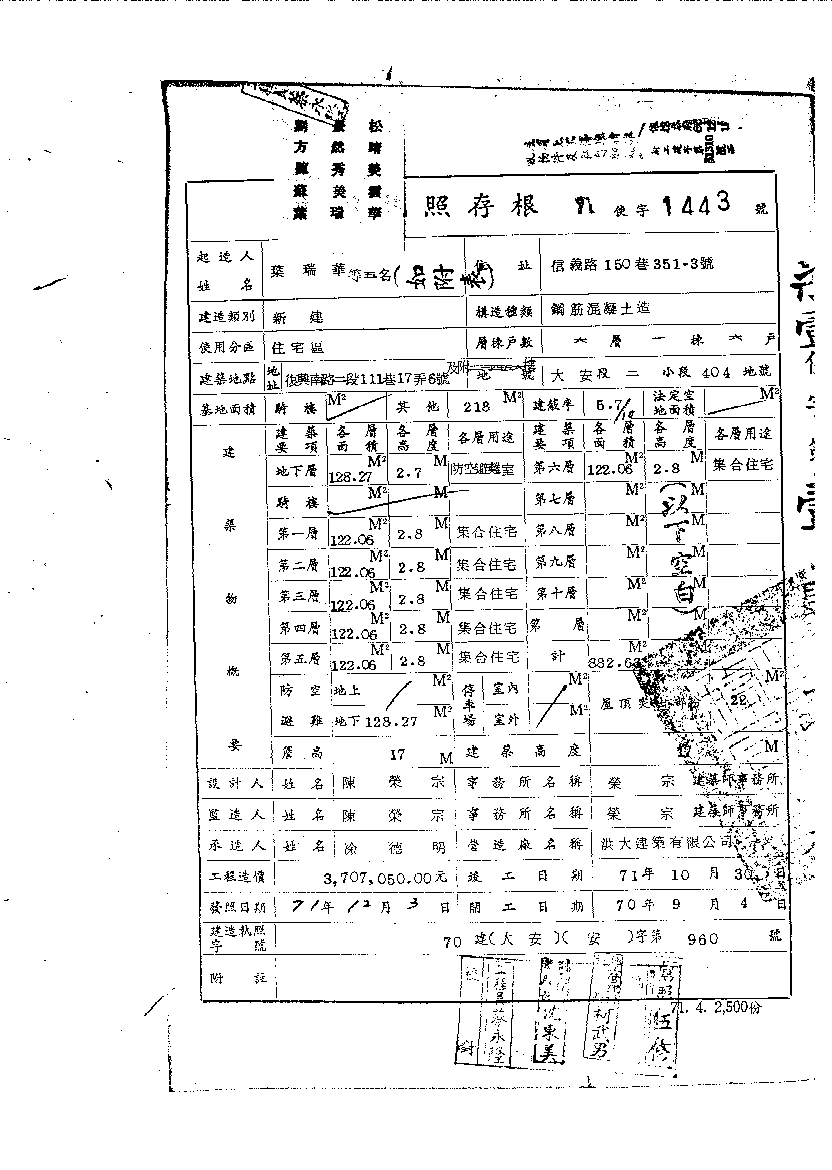 松
然 晴
方 秀 美
蘇 美 雲
葉 瑞 華
照存根 使字1443號
起造人姓名 葉瑞華等五名(如附表) 住址 信義路150巷351-3號
建造類別 新建 構造種類 鋼筋混凝土造
使用分區 住宅區 層棟戶數 六層一棟六戶
建築地點 地址 復興南路一段111巷17弄6號 地號 大安段二小段404地號
基地面積 騎樓 M² 其他 218 M² 建蔽率 5.7/10 法定空地面積 M²
建築物概要
建築要項 各層面積 各層高度 各層用途 建築要項 各層面積 各層高度 各層用途
地下層 128.27 M² 2.7 M 防空避難室 第六層 122.06 M² 2.8 M 集合住宅
騎樓 M² M 第七層 M² M (以下空白)
第一層 122.06 M² 2.8 M 集合住宅 第八層 M² M
第二層 122.06 M² 2.8 M 集合住宅 第九層 M² M
第三層 122.06 M² 2.8 M 集合住宅 第十層 M² M
第四層 122.06 M² 2.8 M 集合住宅 第 層 M² M
第五層 122.06 M² 2.8 M 集合住宅 計 M²
防空避難 地上 M² 停車場 室內 M² 屋頂突 M²
地下128.27 M² 室外 M²
簷高 17 M 建築高度 M
設計人 姓名 陳榮宗 事務所名稱 榮宗 建築師事務所
監造人 姓名 陳榮宗 事務所名稱 榮宗 建築師事務所
承造人 姓名 徐德明 營造廠名稱 洪大建築有限公司
工程造價 3,707,050.00元 竣工日期 71年10月30日
發照日期 71年12月3日 開工日期 70年9月4日
建造執照字號 70建(大安)(安)字第960號
附註
71. 4. 2,500份